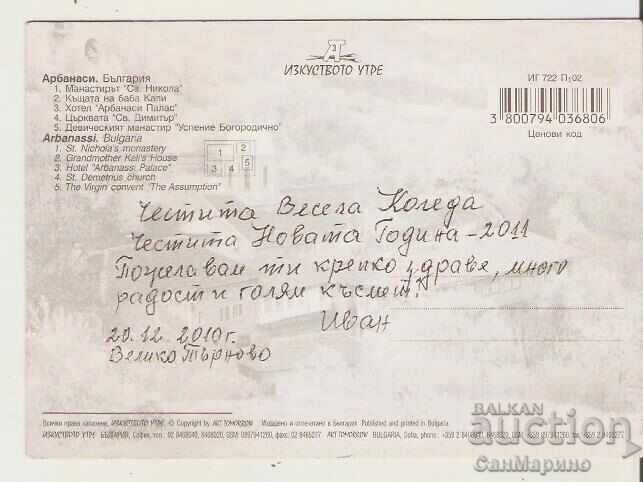 ИЗКУСТВОТО УТРЕ
Арбанаси. България
1. Манастирът "Св. Никола"
2. Къщата на баба Кали
3. Хотел "Арбанаси Палас"
4. Църквата "Св. Димитър"
5. Девическият манастир "Успение Богородично"
Arbanassi. Bulgaria
1. St. Nichola's monastery
2. Grandmother Kali's House
3. Hotel "Arbanassi Palace"
4. St. Demetrius church
5. The Virgin convent "The Assumption"
1 2
3 4 5
ИГ 722 П;02
3 800794 036806
Ценови код
Честита Весела Коледа
Честита Новата Година - 2011
Пожелавам ти крепко здраве, много
радост и голям късмет!
Иван
20.12.2010г.
Велико Търново
Всички права запазени, ИЗКУСТВОТО УТРЕ. © Copyright by ART TOMORROW Издадено и отпечатано в България Published and printed in Bulgaria.
ИЗКУСТВОТО УТРЕ БЪЛГАРИЯ, София, тел.: 02 ART TOMORROW BULGARIA, Sofia, phone:
BALKAN
auction
СанМарино